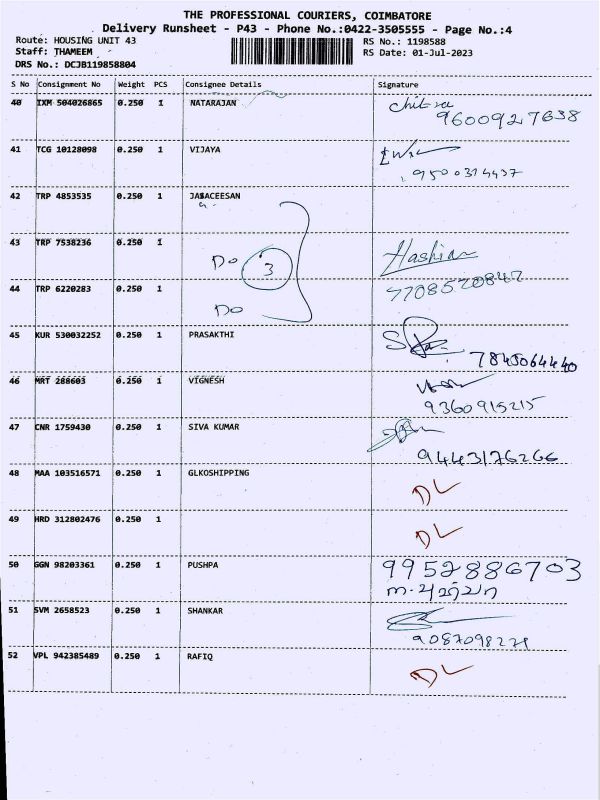 THE PROFESSIONAL COURIERS, COIMBATORE
Delivery Runsheet - P43 - Phone No.:0422-3505555 - Page No.:4
Route: HOUSING UNIT 43
RS No.: 1198588
Staff: THAMEEM
RS Date: 01-Jul-2023
DRS No.: DCJB119858804
S No Consignment No Weight PCS Consignee Details Signature
40 IXM 504026865 0.250 1 NATARAJAN Chitra
9600927638
41 TCG 10128098 0.250 1 VIJAYA
9500314437
42 TRP 4853535 0.250 1 JAGACEESAN
43 TRP 7538236 0.250 1
Do 3
44 TRP 6220283 0.250 1 7708520847
Do
45 KUR 530032252 0.250 1 PRASAKTHI
7845064440
46 MRT 288603 0.250 1 VIGNESH
9360915215
47 CNR 1759430 0.250 1 SIVA KUMAR
9443176266
48 MAA 103516571 0.250 1 GLKOSHIPPING DL
49 HRD 312802476 0.250 1 DL
50 GGN 98203361 0.250 1 PUSHPA 9952886703
51 SVM 2658523 0.250 1 SHANKAR
9087098271
52 VPL 942385489 0.250 1 RAFIQ DL